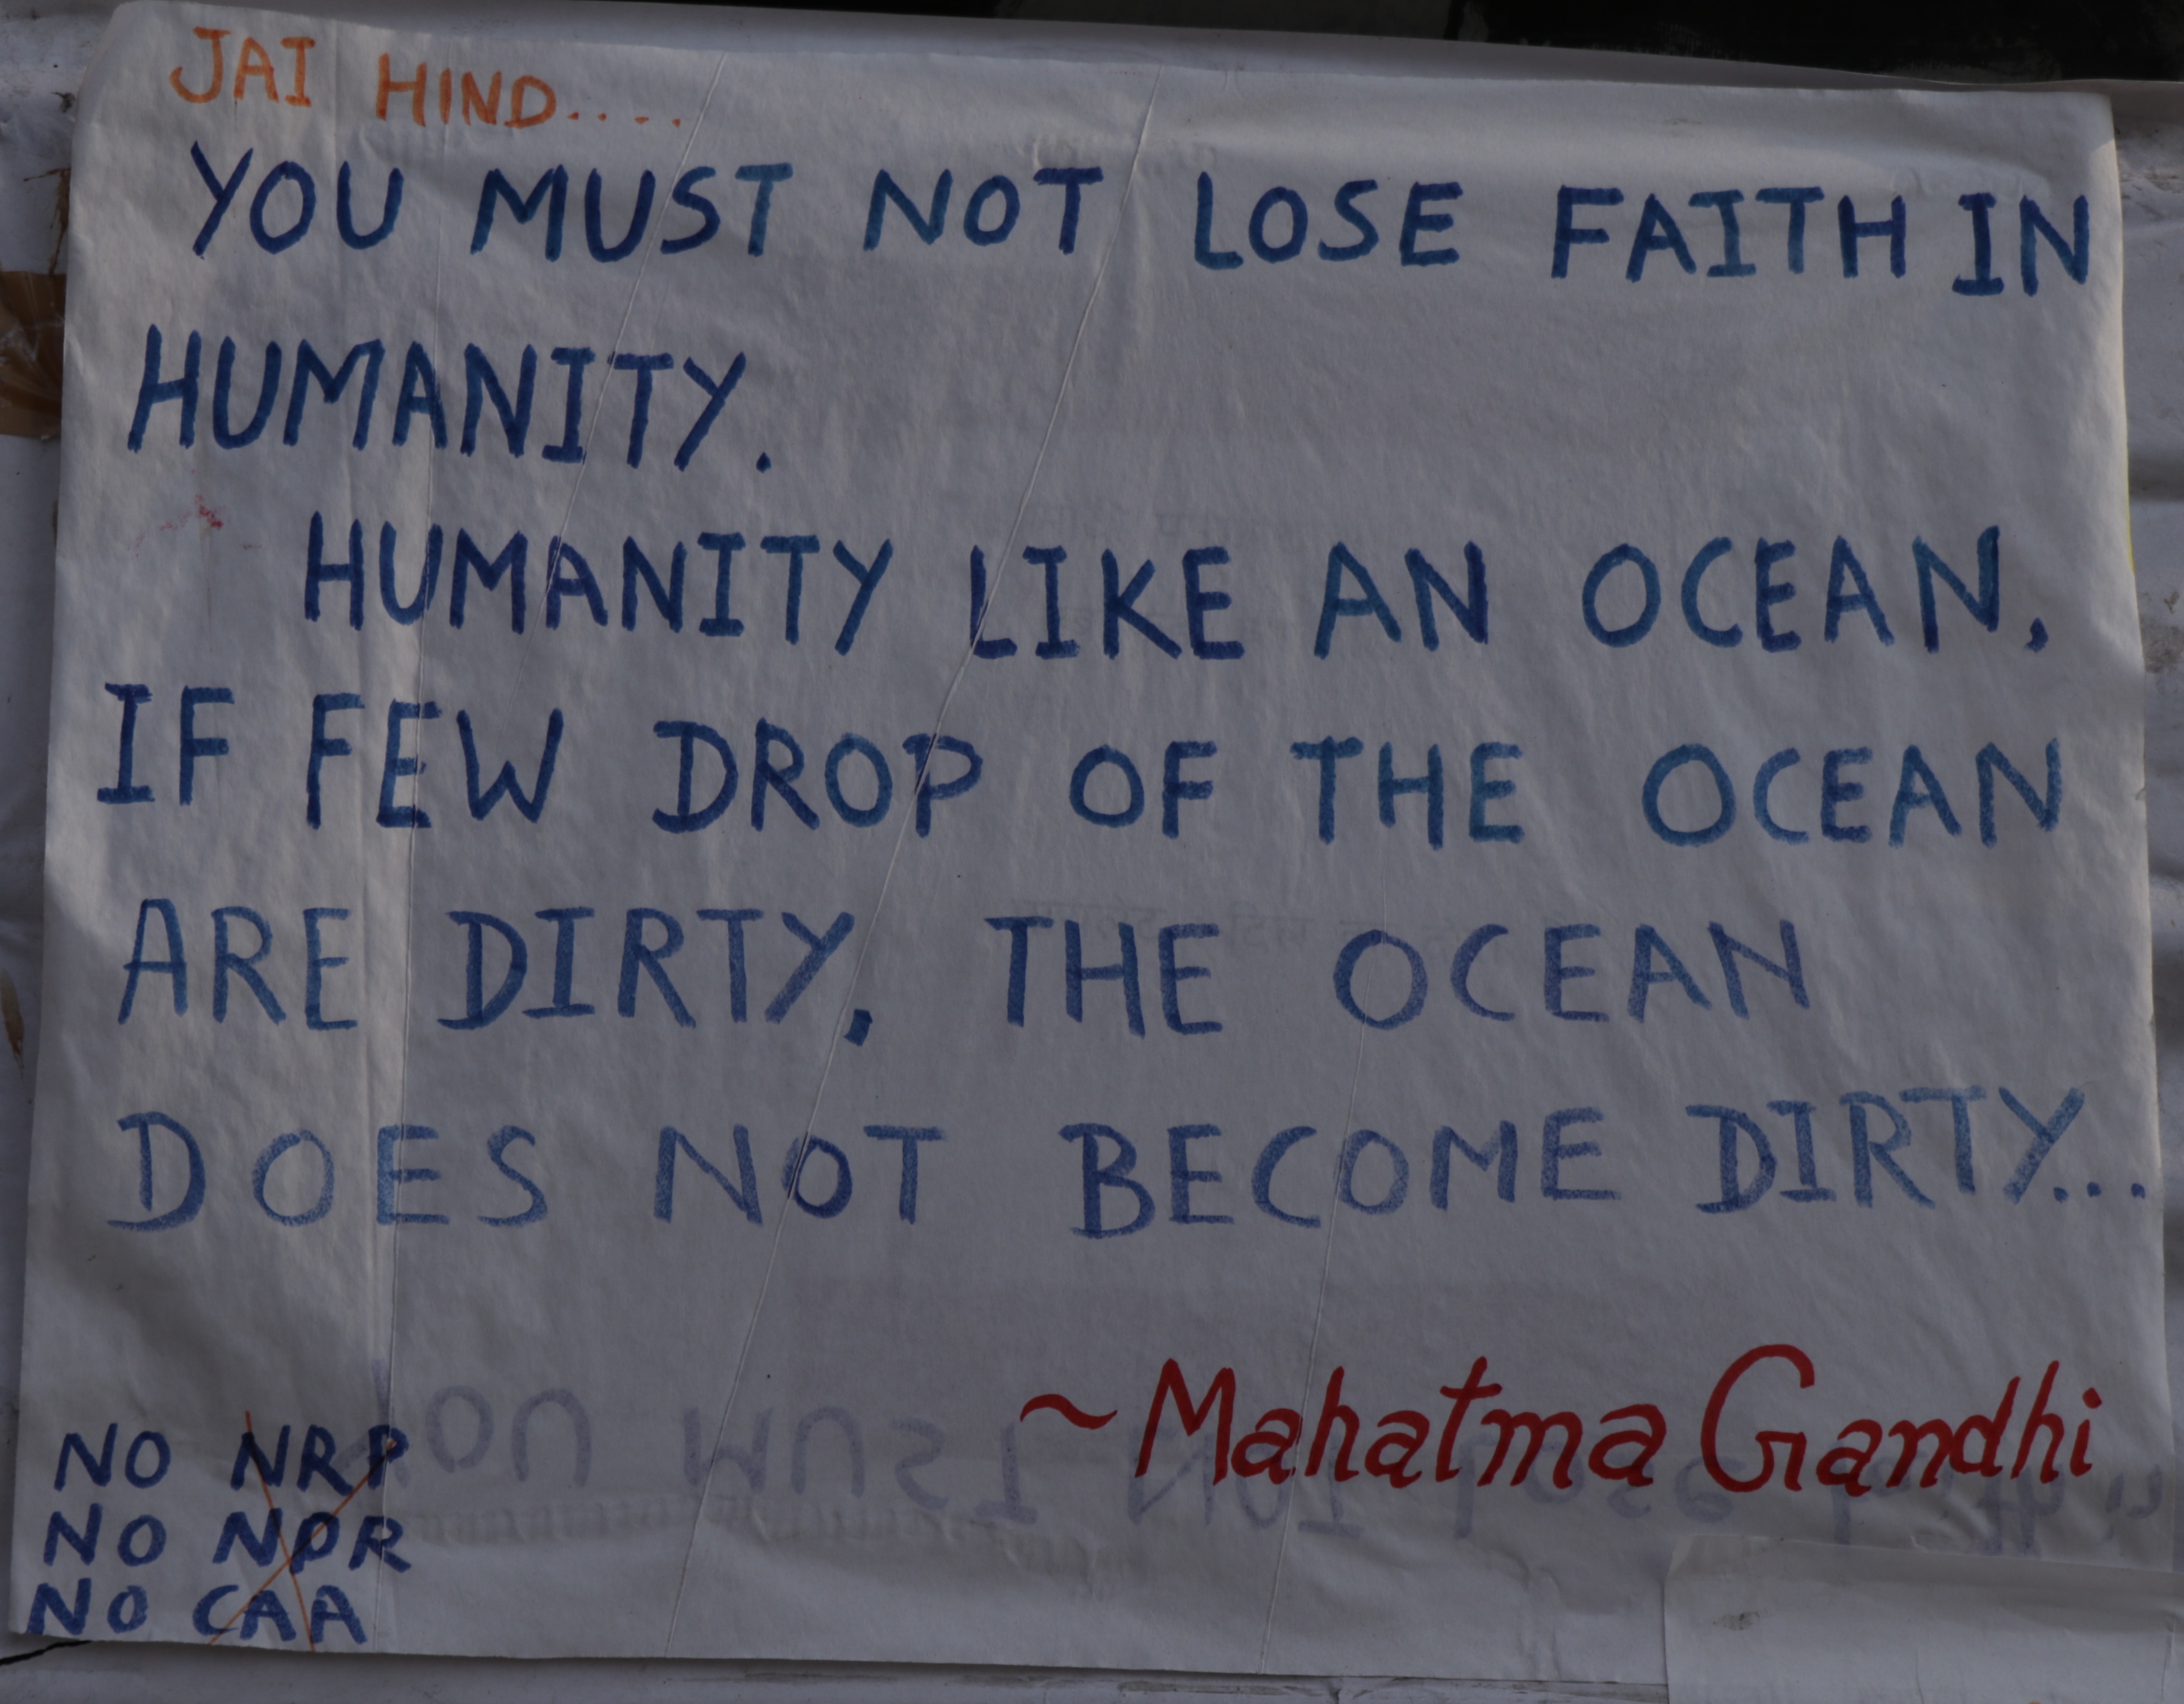 JAI HIND.....
YOU MUST NOT LOSE FAITH IN
HUMANITY.
HUMANITY LIKE AN OCEAN,
IF FEW DROP OF THE OCEAN
ARE DIRTY, THE OCEAN
DOES NOT BECOME DIRTY...
~Mahatma Gandhi
NO NRP
NO NPR
NO CAA